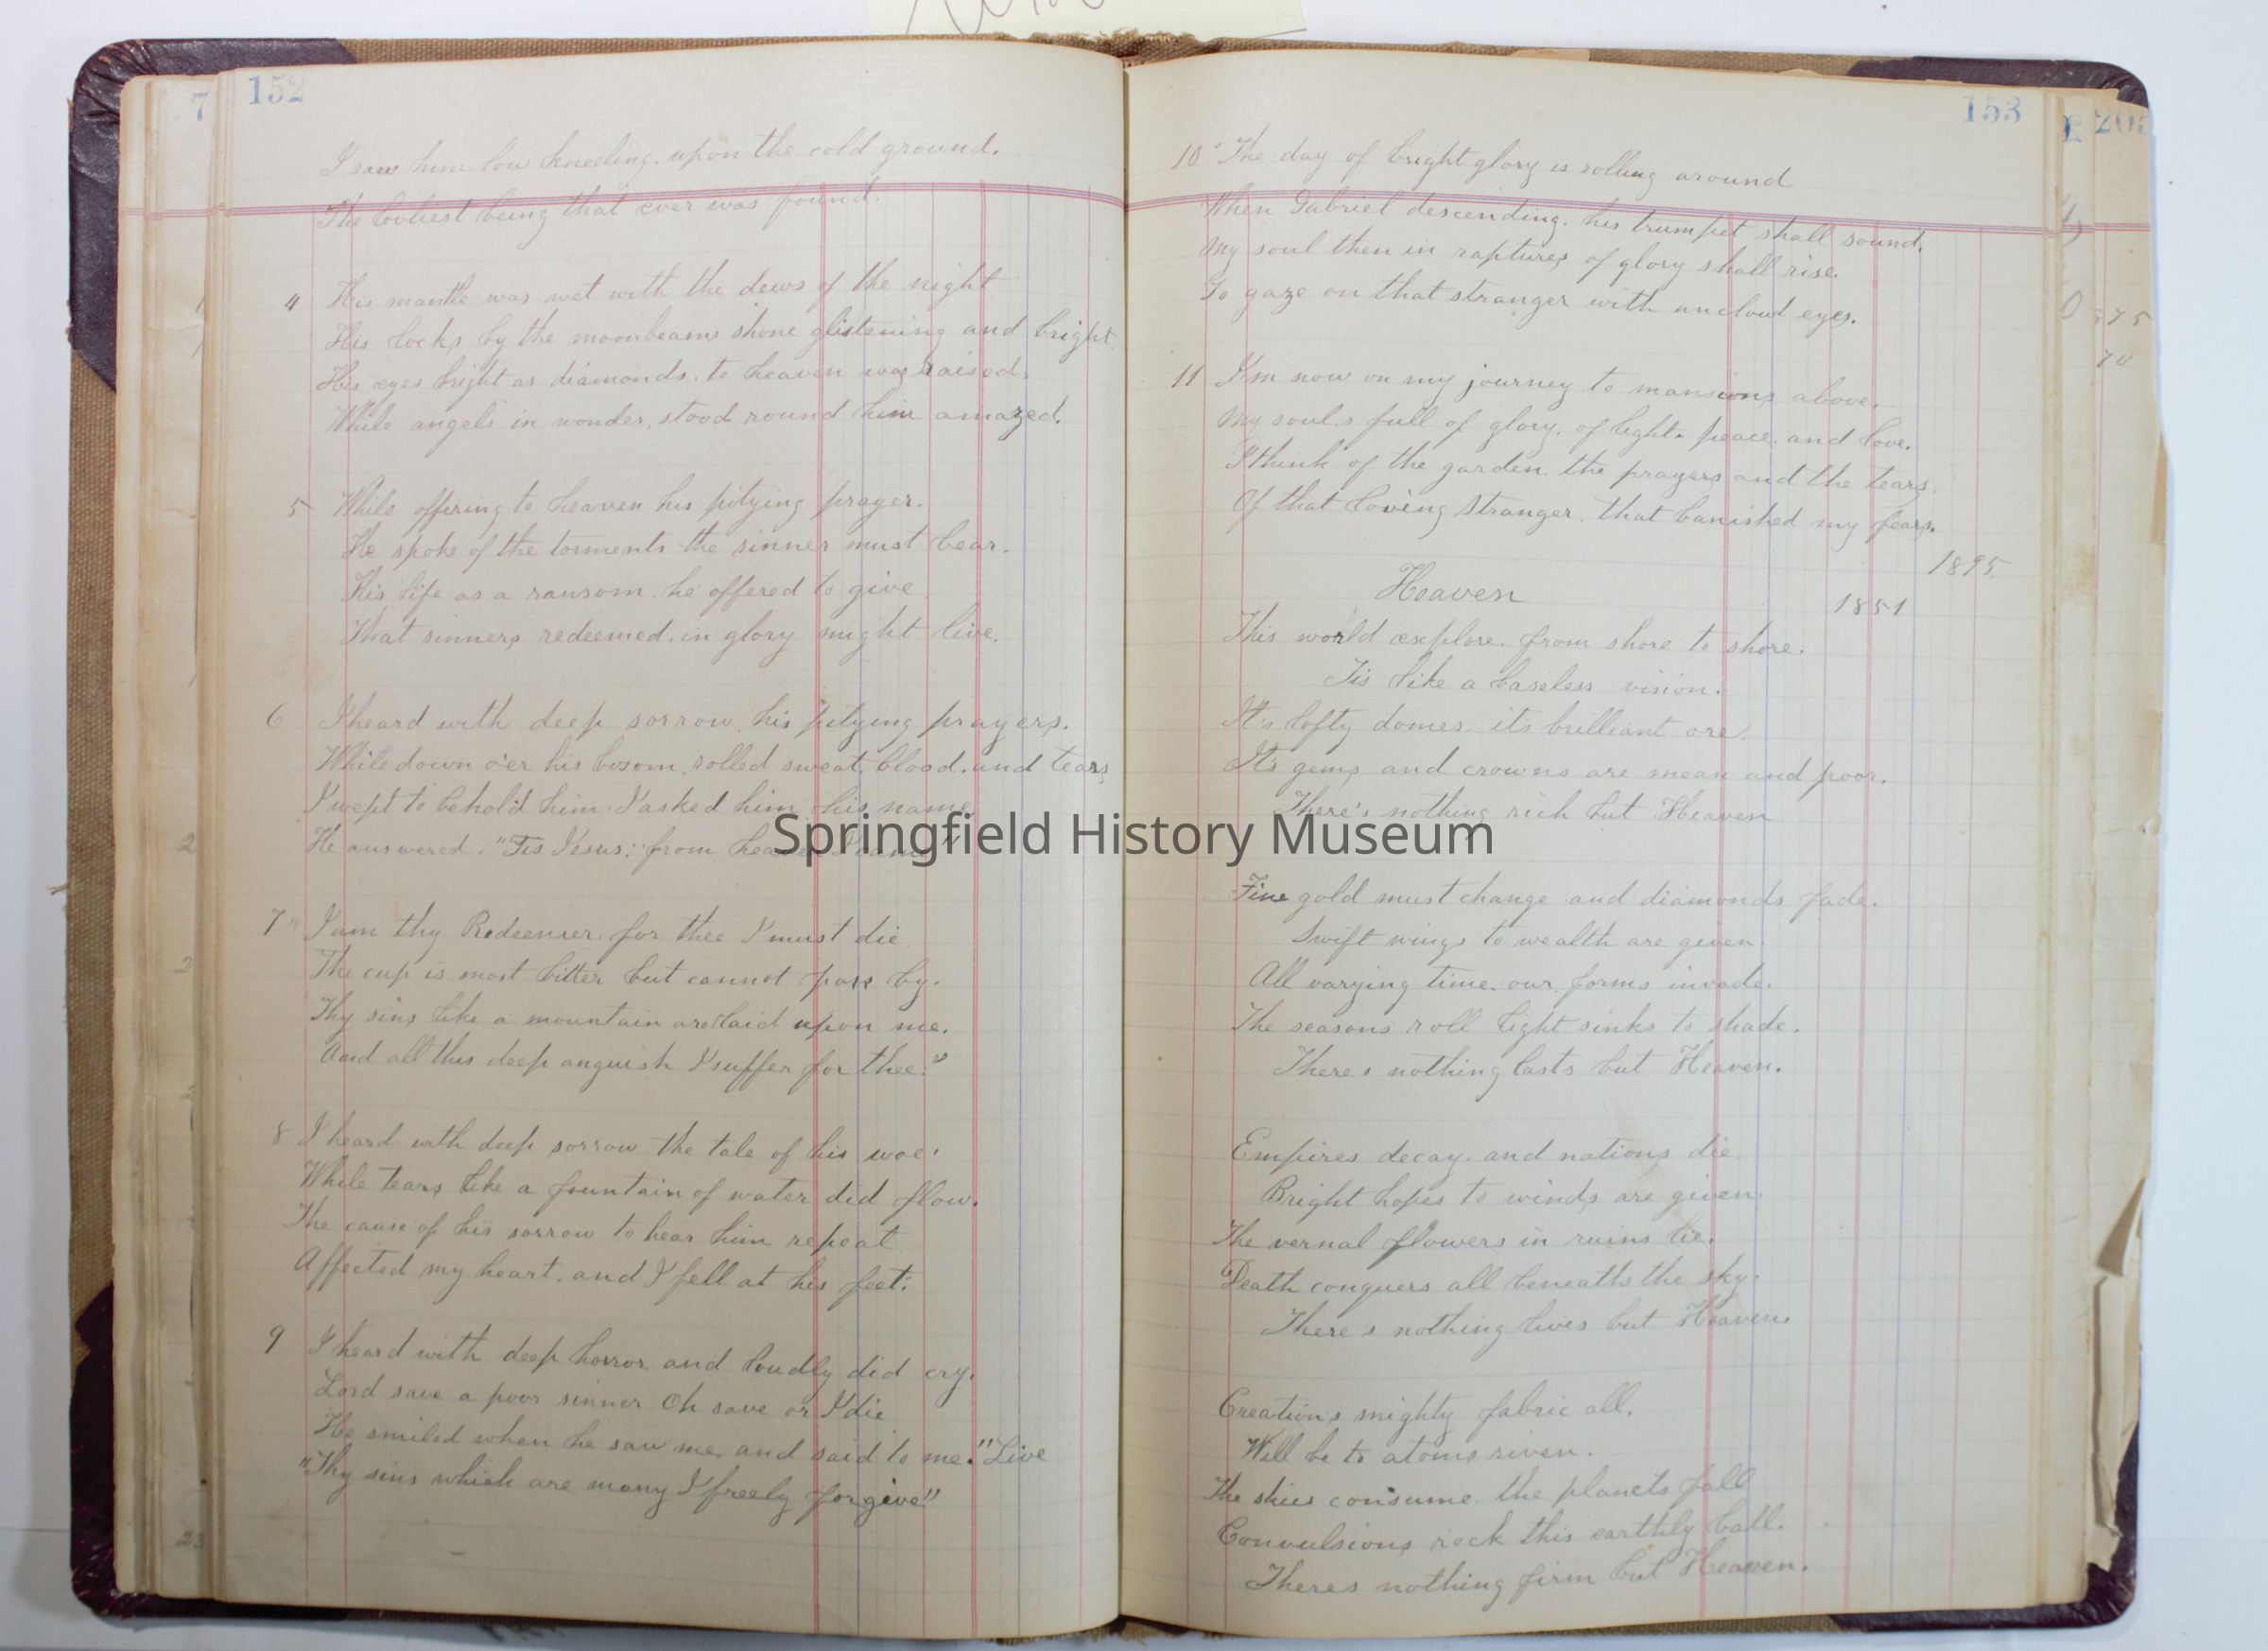 152
I saw him low kneeling upon the cold ground.
The loviest being that ever was found.
4 His mantle was wet with the dews of the night
His locks by the moonbeams shone glistening and bright
His eyes bright as diamonds. to heaven was raised.
While angels in wonder, stood round him amazed.
5 While offering to heaven his pitying prayer.
He spoke of the torments the sinner must bear.
His life as a ransom he offered to give
That sinners redeemed in glory might live.
6 I heard with deep sorrow his pitying prayers.
While down o'er his bosom, rolled sweat, blood. and tears
I wept to behold him. I asked him his name
He answered. "Tis Jesus: from heaven I came"
7" I am thy Redeemer. for thee I must die
The cup is most bitter but cannot pass by.
Thy sins like a mountain are laid upon me.
And all this deep anguish I suffer for thee."
8 I heard with deep sorrow the tale of his woe.
While tears like a fountain of water did flow.
The cause of his sorrow to hear him repeat
Affected my heart. and I fell at his feet.
9 I heard with deep horror and loudly did cry.
Lord save a poor sinner Oh save or I die
He smiled when he saw me, and said to me. "Live
"Thy sins which are many I freely forgive"
153
10 The day of bright glory is rolling around
When Gabriel descending. his trumpet shall sound.
My soul then in raptures of glory shall rise.
To gaze on that stranger with uncloud eyes.
11 I'm now on my journey to mansions above.
My soul.s full of glory. of light. peace. and love.
I think of the garden. the prayers and the tears
Of that loving Stranger. that banished my fears.
1895
Heaven 1851
This world explore. from shore to shore.
Tis like a baseless vision.
It's lofty domes. its brilliant ore.
It's gems and crowns are mean and poor.
There's nothing rich but Heaven
Springfield History Museum
Fine gold must change and diamonds fade.
Swift wings to wealth are given
All varying time. our forms invade.
The seasons roll light sinks to shade.
There s nothing lasts but Heaven.
Empires decay. and nations die.
Bright hopes to winds are given.
The vernal flowers in ruins lie.
Death conquers all beneath the sky.
There's nothing lives but Heaven.
Creation's mighty fabric all.
Will be to atoms riven.
The skies consume the planets fall
Convulsions rock this earthly ball.
Theres nothing firm but Heaven.
7
203
75
70
2
2
23